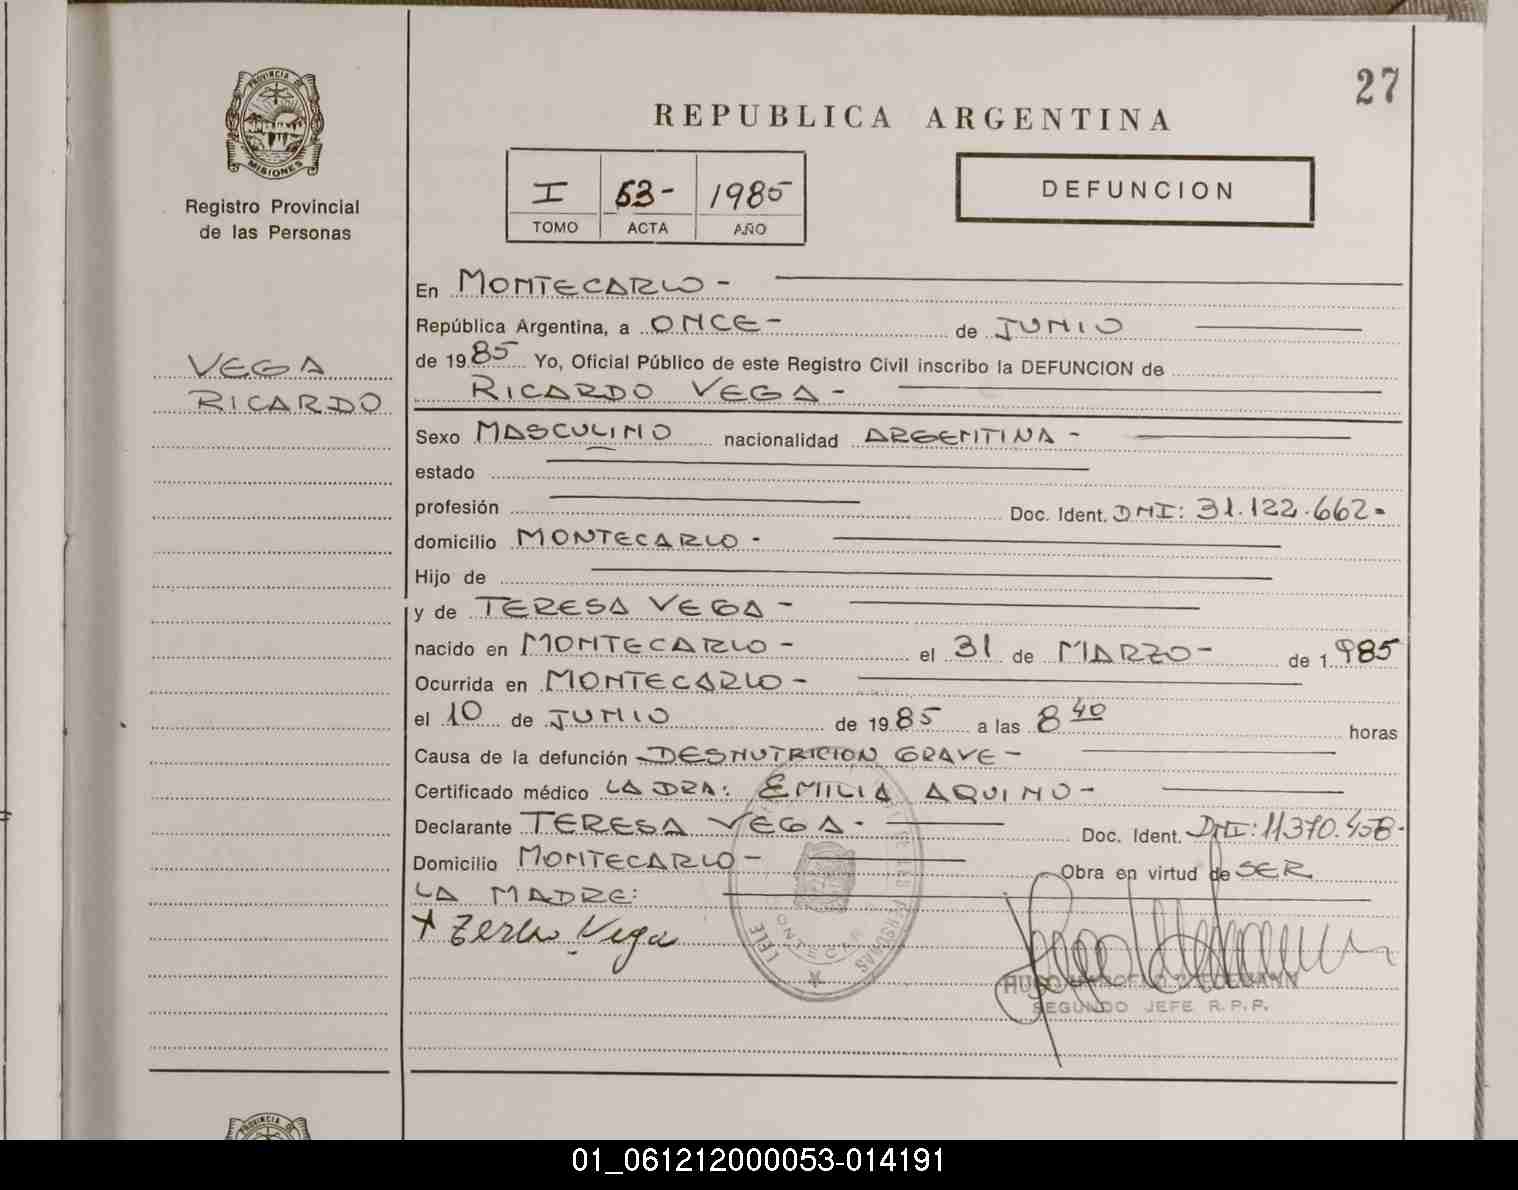 27
PROVINCIA DE
MISIONES
REPUBLICA ARGENTINA
I 53- 1985
TOMO ACTA AÑO
DEFUNCION
Registro Provincial
de las Personas
VEGA
RICARDO
En MONTECARLO -
República Argentina, a ONCE - de JUNIO
de 1985 Yo, Oficial Público de este Registro Civil inscribo la DEFUNCION de
RICARDO VEGA -
Sexo MASCULINO nacionalidad ARGENTINA -
estado
profesión Doc. Ident. DNI: 31.122.662-
domicilio MONTECARLO -
Hijo de
y de TERESA VEGA -
nacido en MONTECARLO - el 31 de MARZO - de 1985
Ocurrida en MONTECARLO -
el 10 de JUNIO de 1985 a las 8 40 horas
Causa de la defunción DESNUTRICION GRAVE -
Certificado médico LA DRA: EMILIA AQUINO -
Declarante TERESA VEGA - Doc. Ident. DNI: 11370.458-
Domicilio MONTECARLO - Obra en virtud de SER
LA MADRE:
+ Vega
HUGO
SEGUNDO JEFE R.P.P.
PROVINCIA DE
01_061212000053-014191